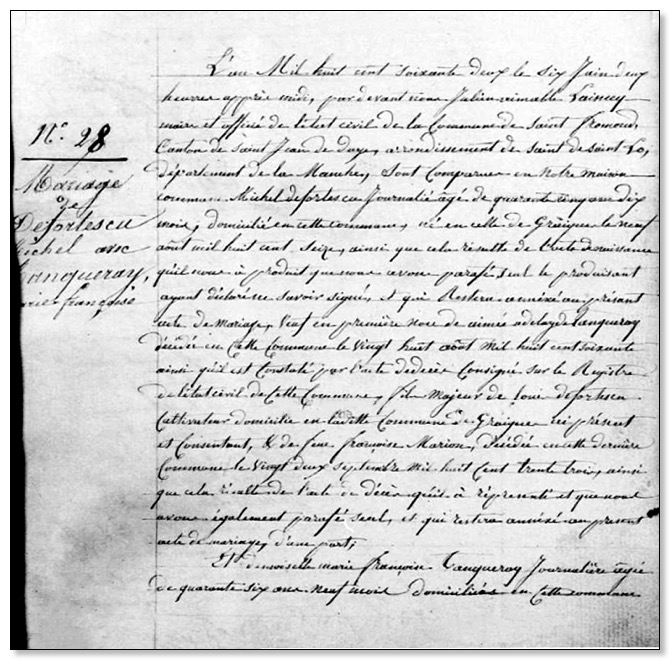 N° 28
Mariage
de
Defortescu
Michel avec
Tanqueray,
Marie françoise
L'an Mil huit cent soixante deux le six Juin deux
heures apprès midi, par devant nous Julien aimable
maire et officié de l'état civil de la Commune de saint fromond,
Canton de saint Jean de daye, arrondissement de saint de saint Lo,
département de la Manche, Sont Comparus en notre maison
commune Michel defortescu Journalié agé de quarante cinq ans dix
mois, domicilié en cette commune, né en celle de Graigne le neuf
août mil huit cent seize, ainsi que cela résulte de l'acte de naissance
qu'il nous à produit que nous avons parafé seul le produisant
ayant déclaré ne savoir signé, et qui Restera annéxé au présent
acte de mariage, Veuf en première noce de aimée adelayde tanqueray
décédée en Cette Commune le Vingt huit août Mil huit cent soixante
ainsi qu'il est Constaté par l'acte de décès Consigné sur le Registre
de l'état civil de Cette Commune, fils Majeur de louis defortescu
Cultivateur domicilié en ladite Commune de Graigne ici présent
et Consentant, & de feue françoise Marion, Décédée en cette dernière
Commune le Vingt deux septembre Mil huit Cent trente trois, ainsi
que cela résulte de l'acte de décès qu'il à réprésenté et que nous
avons également parafé seul, et qui restera annéxé au présent
acte de mariage, d'une part;
Et demoiselle marie françoise Tanqueray Journalière agée
de quarante six ans neuf mois domiciliée en Cette commune